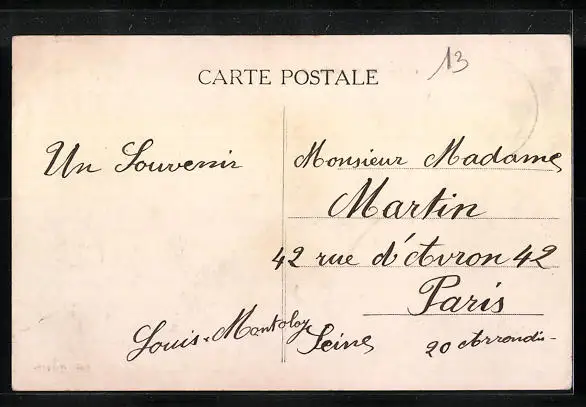 CARTE POSTALE
13
Un Souvenir
Louis
Monsieur Madame
Martin
42 rue d'Avron 42
Paris
Seine 20 Arrondis-